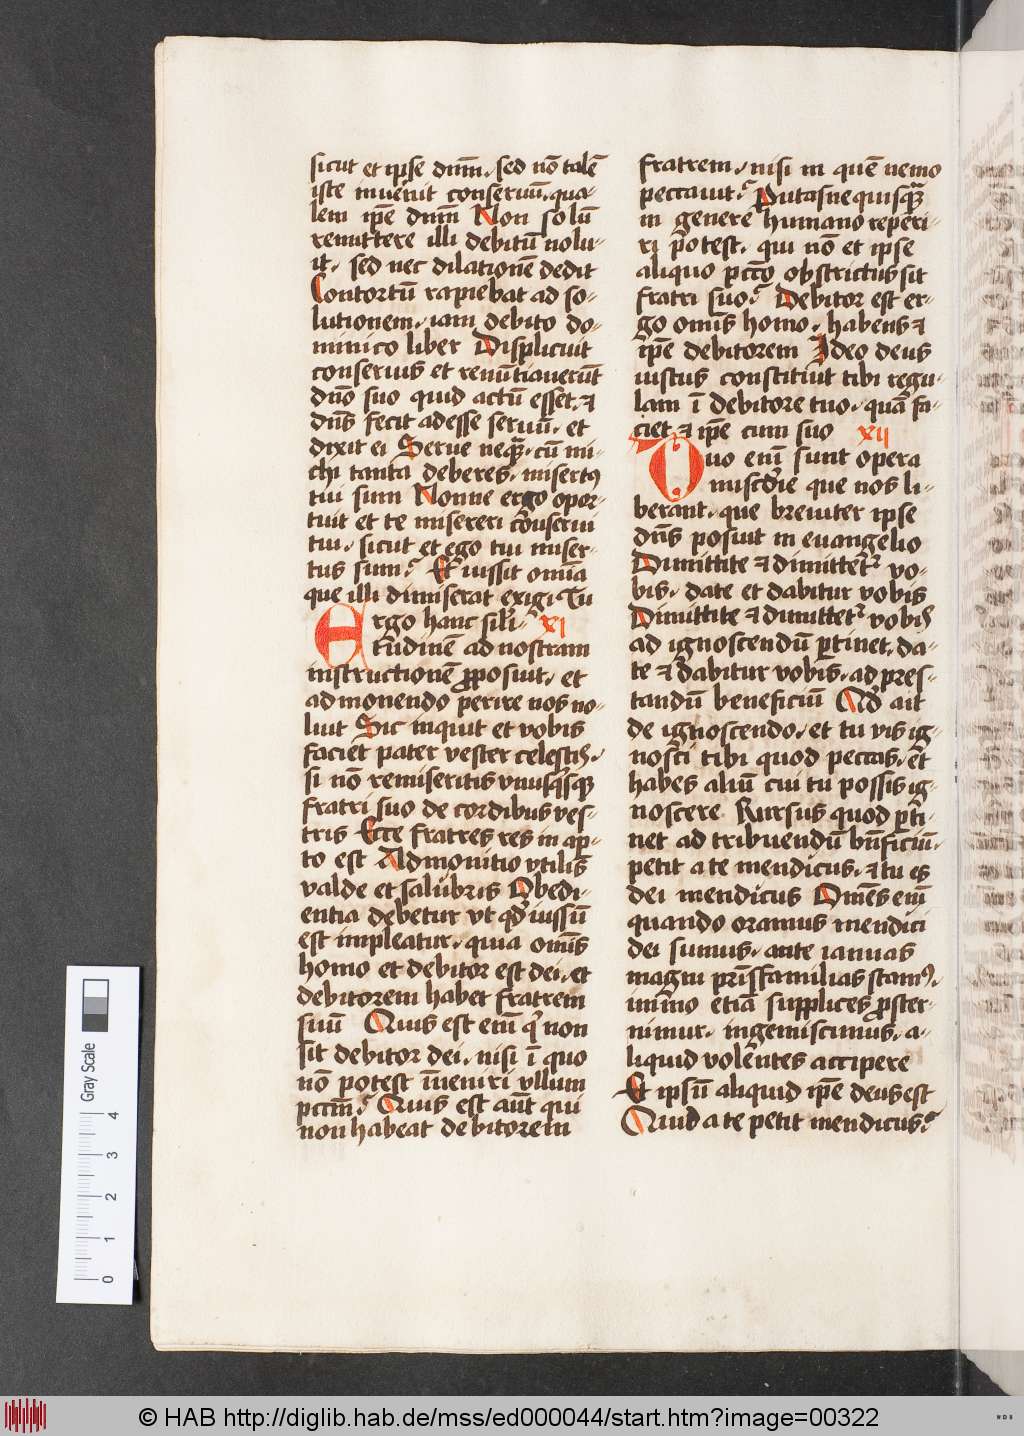 sicut et ip̅se dn̅m. sed nō talē
iste invenit conseruū. qua-
lem ip̅e dn̅m Non solū
remittere illi debitū nolu-
it. sed nec dilationē dedit
Contortū rapiebat ad so-
lutionem. iam debito do-
minico liber Displicuit
conseruis et renūtiauerūt
dn̅o suo quid actū esset. ⁊
dn̅s fecit adesse seruū. et
dixit ei Serue neq̅ꝫ. cū mi-
chi tanta deberes. misertꝰ
tui sum Nonne ergo opor-
tuit et te misereri cōserui
tui. sicut et ego tui miser-
tus sum? Et iussit omīa
que illi dimiserat exigi Tu
Ergo hanc sil'i- xi
tudinē ad nostram
instructionē ꝓposuit. et
admonendo perire nos no-
luit Sic inquit et vobis
faciet pater vester celestis.
si nō remiseritis vnusq̇sqꝫ
fratri suo de cordibus ves-
tris Ecce fratres res in ap̲-
to est Admonitio vtilis
valde et salubris Obedi-
entia debetur vt qd̕ iussū
est impleatur. quia omīs
homo et debitor est dei. et
debitorem habet fratrem
suū Quis est enī qi non
sit debitor dei. nisi ī quo
nō potest īueniri vllum
pccm̅? Quis est aūt qui
non habeat debitorem
fratrem. nisi in quē nemo
peccauit? Putasne quisq̅ꝫ
in genere humano reperi-
ri potest. qui nō et ipse
aliquo pccō obstrictus sit
fratri suo? Debitor est er-
go omīs homo. habens ⁊
ip̅e debitorem Ideo deus
iustus constituit tibi regu-
lam ī debitore tuo. quā fa-
ciet ⁊ ip̅e cum suo xii
Duo enī sunt opera
misc̅die que nos li-
berant. que breuiter ipse
dn̅s posuit in euangelio
Dimittite ⁊ dimittet̉ vo-
bis. date et dabitur vobis
Dimittite ⁊ dimittet̉ vobis
ad ignoscendū p̲tinet. da-
te ⁊ dabitur vobis. ad pres-
tandū beneficiū Qd̕ ait
de ignoscendo. et tu vis ig-
nosci tibi quod peccas. et
habes aliū cui tu possis ig-
noscere Rursus quod p̲ti-
net ad tribuendū bn̅ficiū.
petit a te mendicus. ⁊ tu es
dei mendicus Omēs enī
quando oramus mendici
dei sumus. ante ianuas
magni pr̅isfamilias stamꝰ.
immo etiā supplices ꝓster-
nimur. ingemiscimus. a-
liquid volentes accipere
Et ipsū aliquid ip̅e deus est
Quid a te petit mendicus?
Gray Scale
4
3
2
1
0
© HAB http://diglib.hab.de/mss/ed000044/start.htm?image=00322